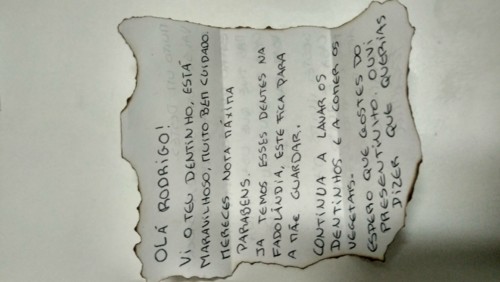 OLÁ RODRIGO!
VI O TEU DENTINHO, ESTÁ
MARAVILHOSO, MUITO BEM CUIDADO.
MERECES NOTA MÁXIMA
PARABENS.
JA TEMOS ESSES DENTES NA
FADOLÂNDIA, ESTE FICA PARA
A MÃE GUARDAR.
CONTINUA A LAVAR OS
DENTINHOS E A COMER OS
VEGETAIS.
ESPERO QUE GOSTES DO
PRESENTINHO, OUVI
DIZER QUE QUERIAS